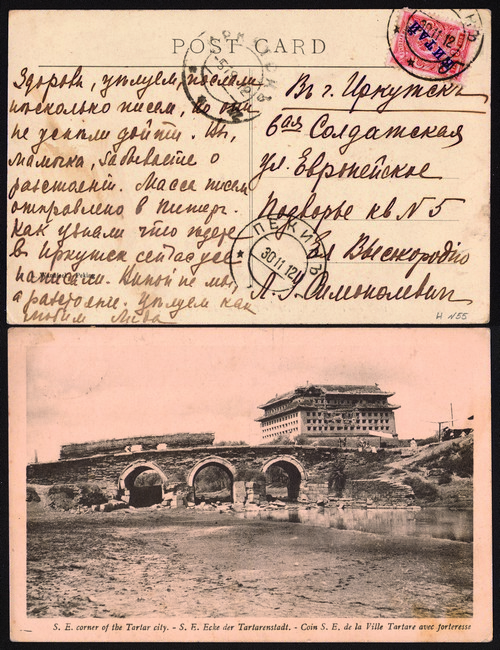 POST CARD
КИТАЙ
30 11 12
Здоровы, цѣлуемъ, послали
нѣсколько писем, но они
не успѣли дойти. Вы,
мамочка, забываете о
разстоянiи. Масса писем
отправлено в Питер.
Как узнали что
в Иркутск сейчас же
написали.
а разстоянiе. Цѣлуем как
любим
В г. Иркутскъ
6ая Солдатская
ул. Европейское
Подворье кв N 5
Ея Высокородiю
Л. Г. Симонолевичъ
ПЕКИНЪ
30 11 12
H N55
S. E. corner of the Tartar city. - S. E. Ecke der Tartarenstadt. - Coin S. E. de la Ville Tartare avec forteresse